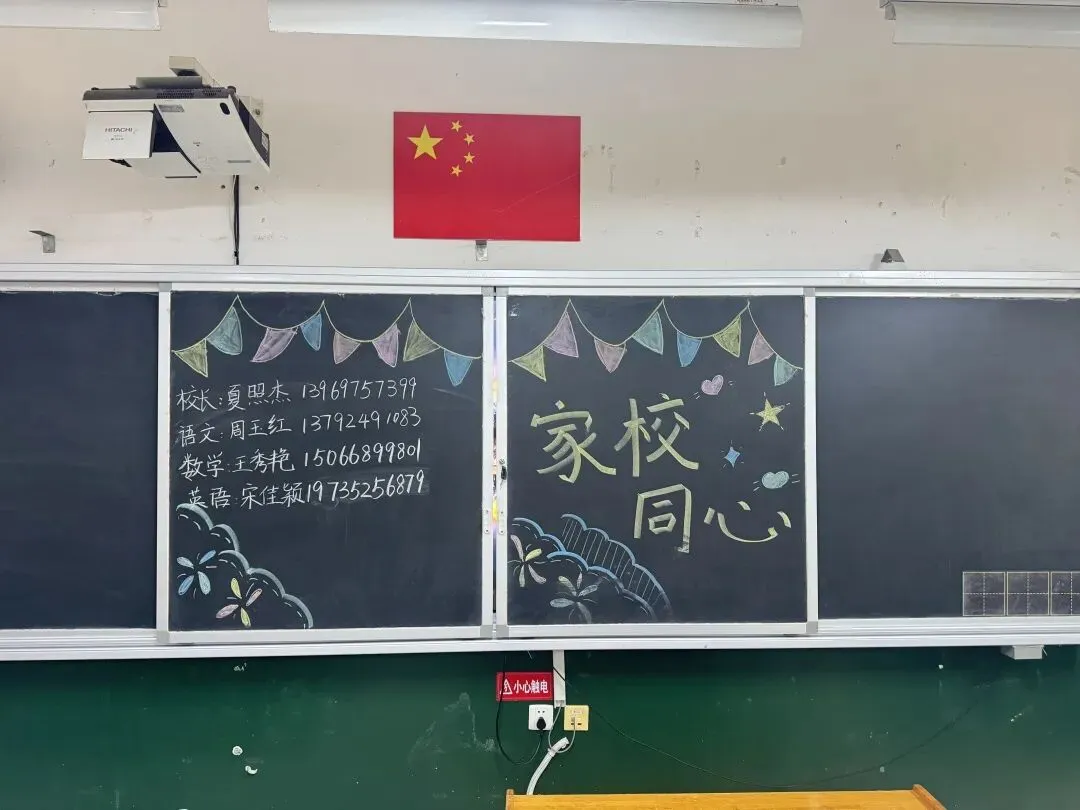 HITACHI
校长:夏照杰 13969757399
语文:周玉红 13792491083
数学:王秀艳 15066899801
英语:宋佳颖19735256879
家校
同心
小心触电